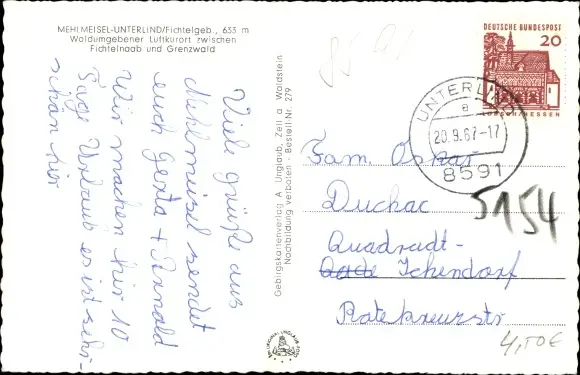 MEHLMEISEL-UNTERLIND/Fichtelgeb., 633 m
Waldumgebener Luftkurort zwischen
Fichtelnaab und Grenzwald
Viele grüße aus
Mehlmeisel sendet
euch Gerta + Arnold
Wir machen hir 10
Tage Urlaub es ist sehr
schön hir
Gebirgskartenverlag A. Unglaub, Zell a. Waldstein
Nachbildung verboten - Bestell-Nr. 279
DEUTSCHE BUNDESPOST
20
LORSCH/HESSEN
UNTERLIND
a
20.9.67-17
8591
Fam. Oskar
Duchac
5154
Quadradt-
Ichendorf
Rotekreuzstr
4,50€